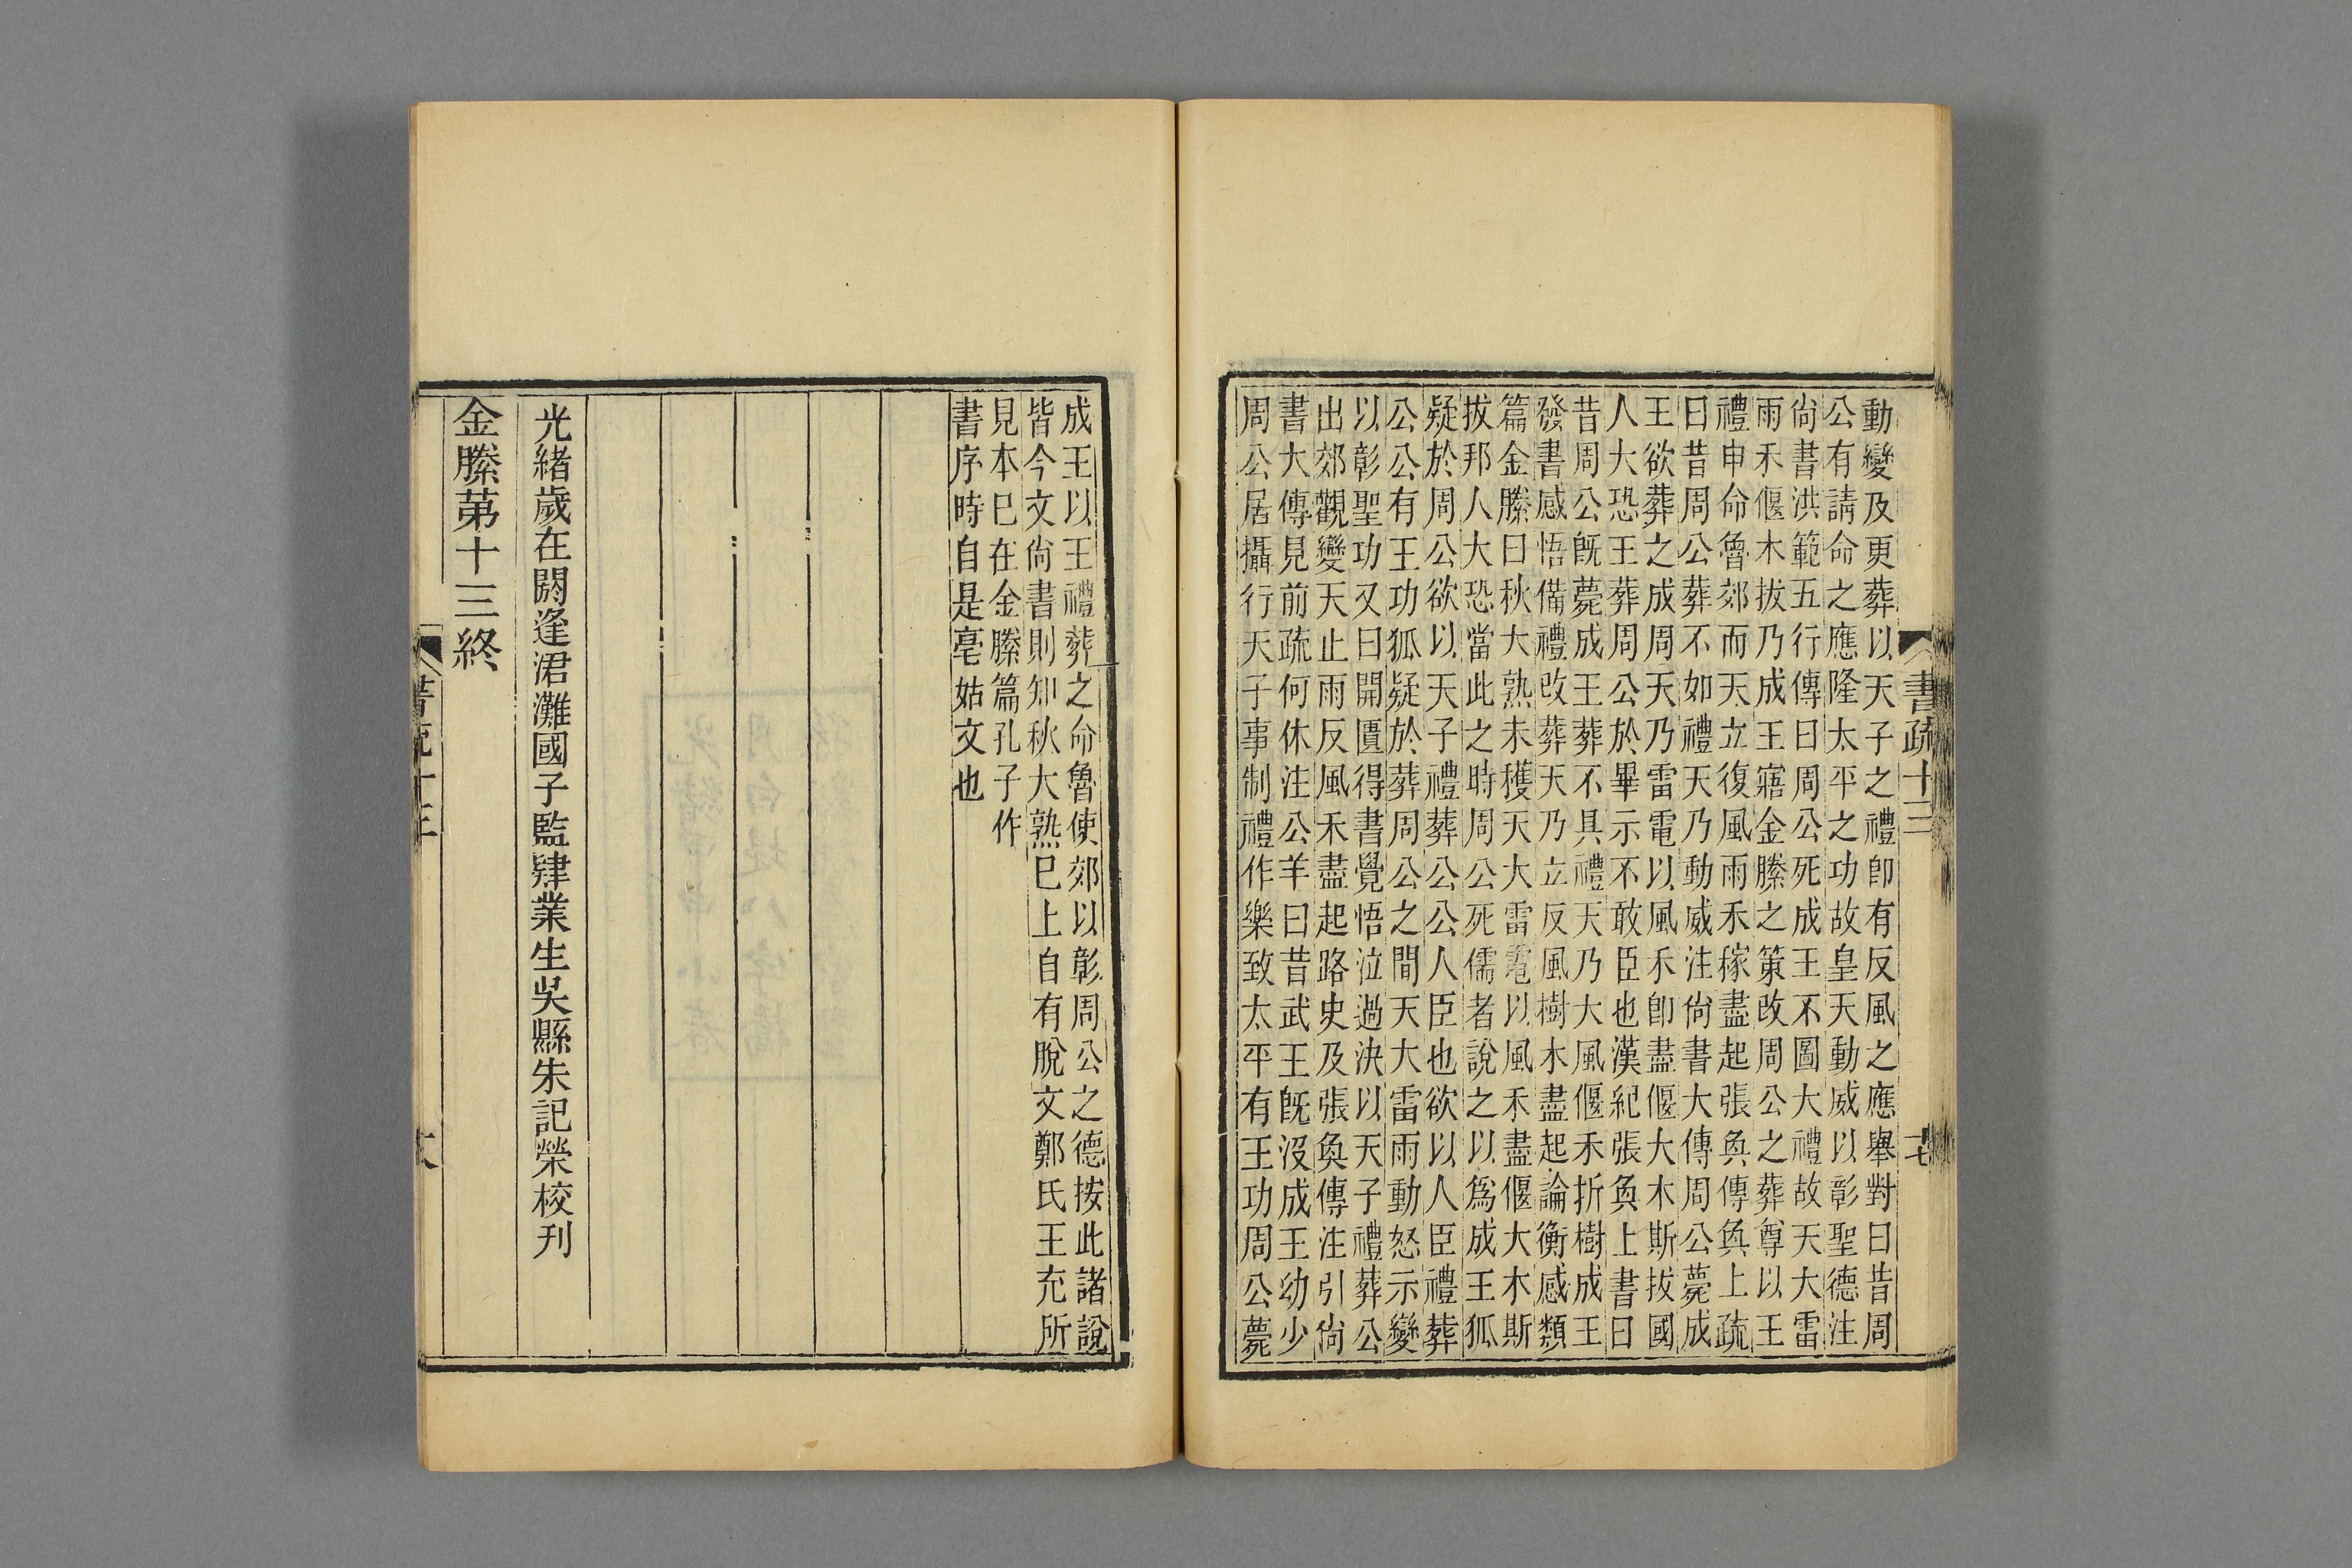 書疏十三
十七
動變及更葬以天子之禮卽有反風之應舉對曰昔周
公有請命之應隆太平之功故皇天動威以彰聖德注
尙書洪範五行傳曰周公死成王不圖大禮故天大雷
雨禾偃木拔乃成王寤金縢之策改周公之葬尊以王
禮申命魯郊而天立復風雨禾稼盡起張奐傳奐上疏
曰昔周公葬不如禮天乃動威注尙書大傳周公薨成
王欲葬之成周天乃雷電以風禾卽盡偃大木斯拔國
人大恐王葬周公於畢示不敢臣也漢紀張奐上書曰
昔周公旣薨成王葬不具禮天乃大風偃禾折樹成王
發書感悟備禮改葬天乃立反風樹木盡起論衡感類
篇金縢曰秋大熟未穫天大雷電以風禾盡偃大木斯
拔邦人大恐當此之時周公死儒者說之以爲成王狐
疑於周公欲以天子禮葬公公人臣也欲以人臣禮葬
公公有王功狐疑於葬周公之間天大雷雨動怒示變
以彰聖功又曰開匱得書覺悟泣過決以天子禮葬公
出郊觀變天止雨反風禾盡起路史及張奐傳注引尙
書大傳見前疏何休注公羊曰昔武王旣沒成王幼少
周公居攝行天子事制禮作樂致太平有王功周公薨
成王以王禮葬之命魯使郊以彰周公之德按此諸說
皆今文尙書則知秋大熟巳上自有脫文鄭氏王充所
見本巳在金縢篇孔子作
書序時自是亳姑文也
光緒歲在閼逢涒灘國子監肄業生吳縣朱記榮校刊
金縢第十三終